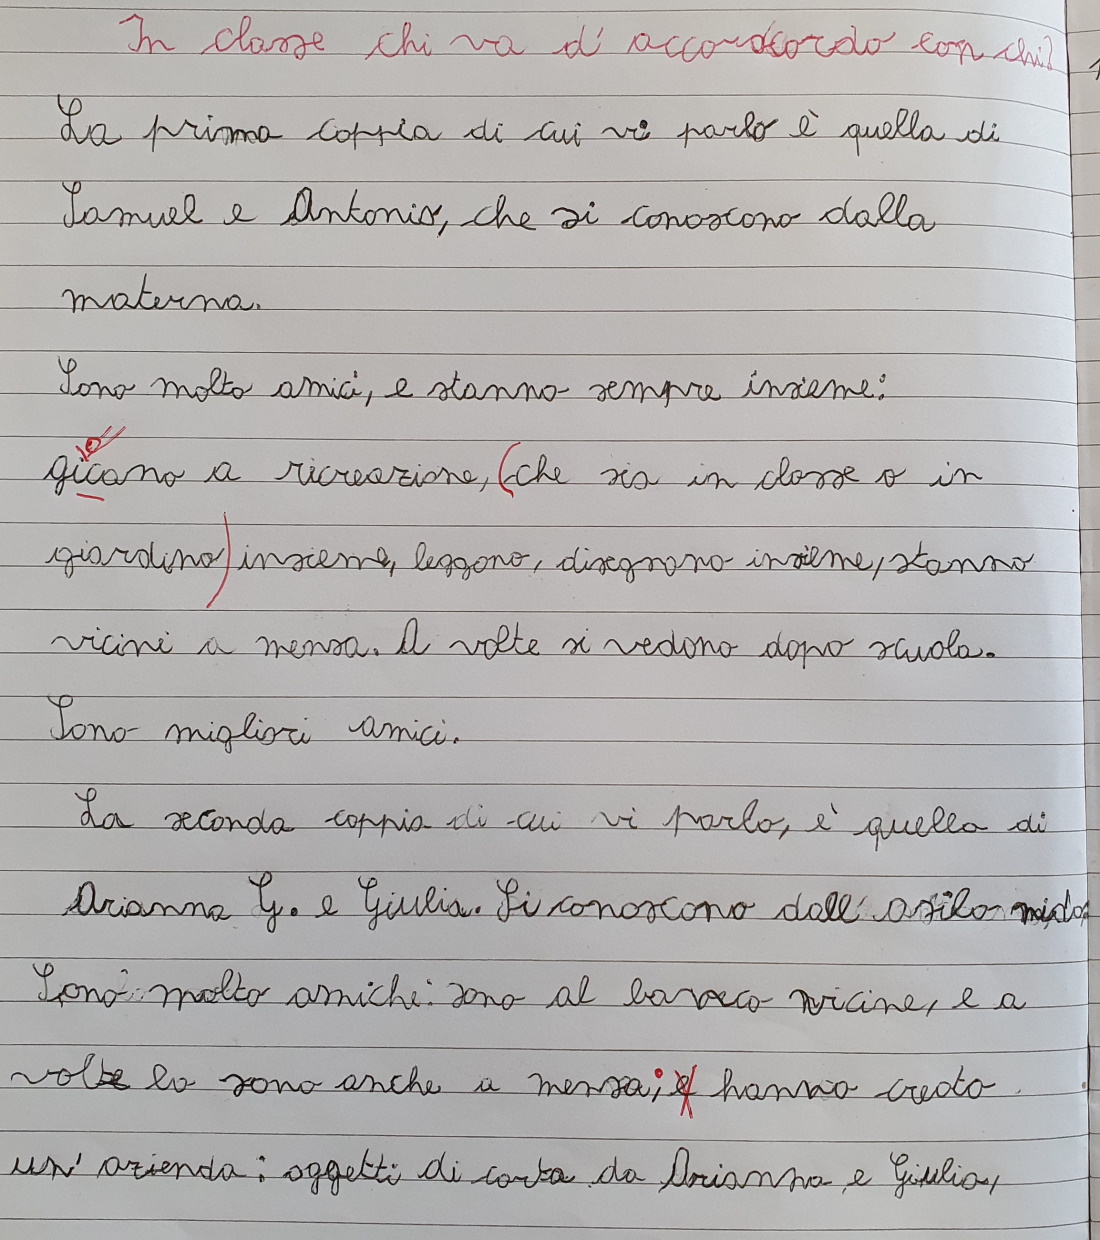 In classe chi va d'accordo con chi?
La prima coppia di cui vi parlo è quella di
Samuel e Antonio, che si conoscono dalla
materna.
Sono molto amici, e stanno sempre insieme:
gicano a ricreazione, (che sia in classe o in
giardino) insieme, leggono, disegnono insieme, stanno
vicini a mensa. A volte si vedono dopo scuola.
Sono migliori amici.
La seconda coppia di cui vi parlo, è quella di
Arianna G. e Giulia. Si conoscono dall'asilo nido,
Sono molto amiche: sono al banco vicine, e a
volte lo sono anche a mensa; hanno creato
un'azienda: oggetti di carta da Arianna e Giulia,